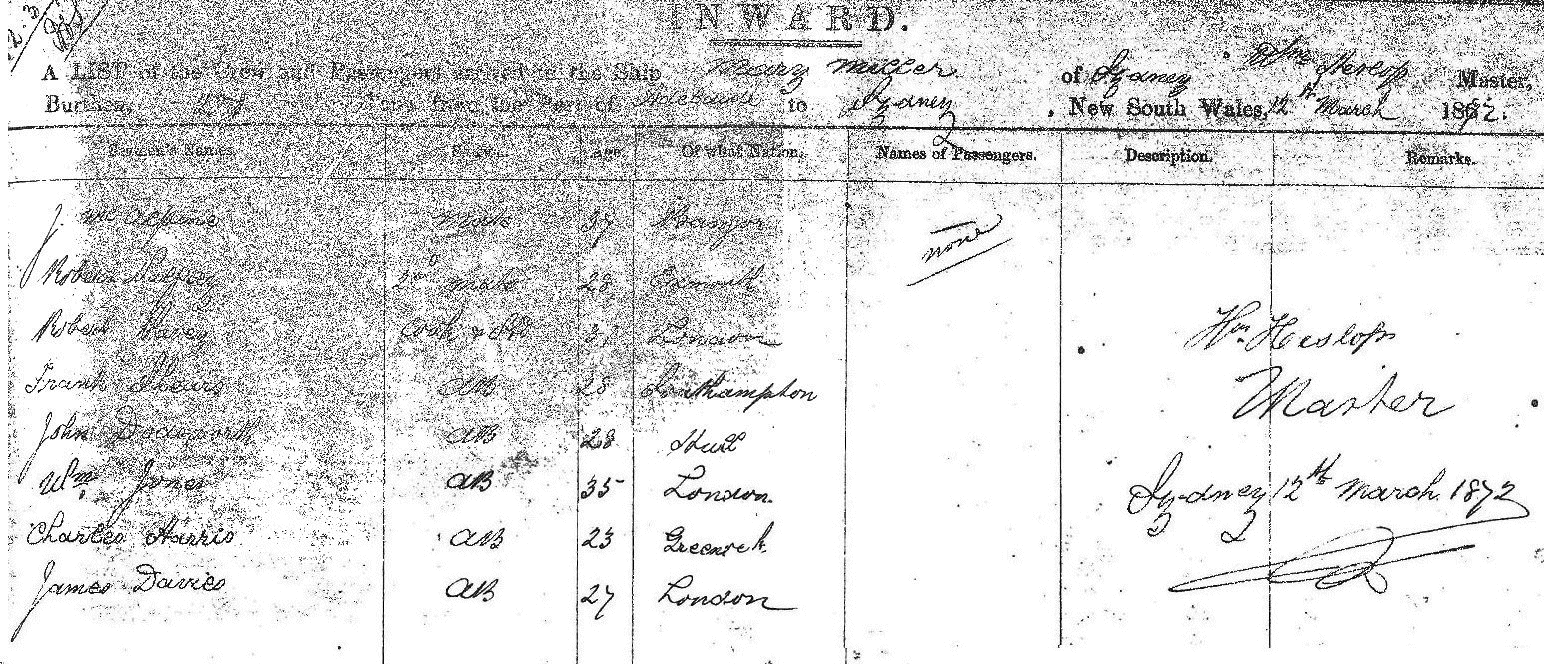 INWARD.
A LIST of the Crew and Passengers arrived in the Ship Mary Miller of Sydney Wm Heslop Master,
Burthen, from the Port of to Sydney, New South Wales, 12th March 1872.
Names. Age Of what Nation. Names of Passengers. Description. Remarks.
J. Mate 37 Bangor none
Robert 2nd mate 28 Exmouth
Robert Cook & 31 London Wm Heslop
Frank Shears AB 28 Southampton Master
John Dodsworth AB 28 Hull
Wm Jones AB 35 London Sydney 12th March 1872
Charles Harris AB 23 Greenwch
James Davies AB 27 London